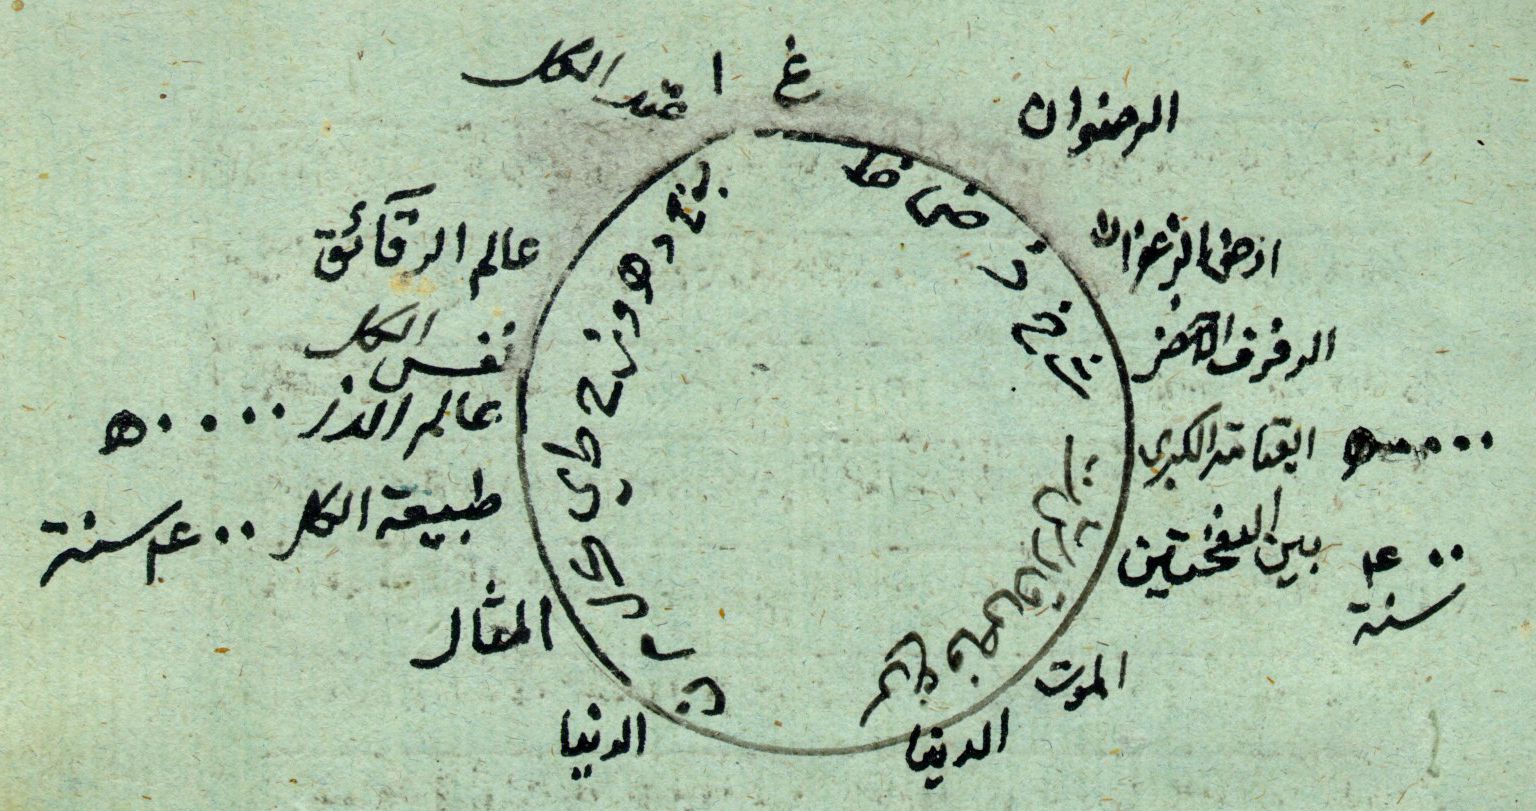 غ
ا
عقل الكل
عالم الرقائق
نفس الكل
عالم الذر ٥٠٠٠٠
طبيعة الكل ٤٠٠ سنة
المثال
الدنيا
الرضوان
ارض الزعفران
الرفرف الاخضر
القيامة الكبرى ٥٠٠٠٠
بين النفختين ٤٠٠ سنة
الموت
الدنيا
ب ج د ه و ز ح ط ي ك ل م ن
س ع ف ص ق ر ش ت ث خ ذ ض ظ